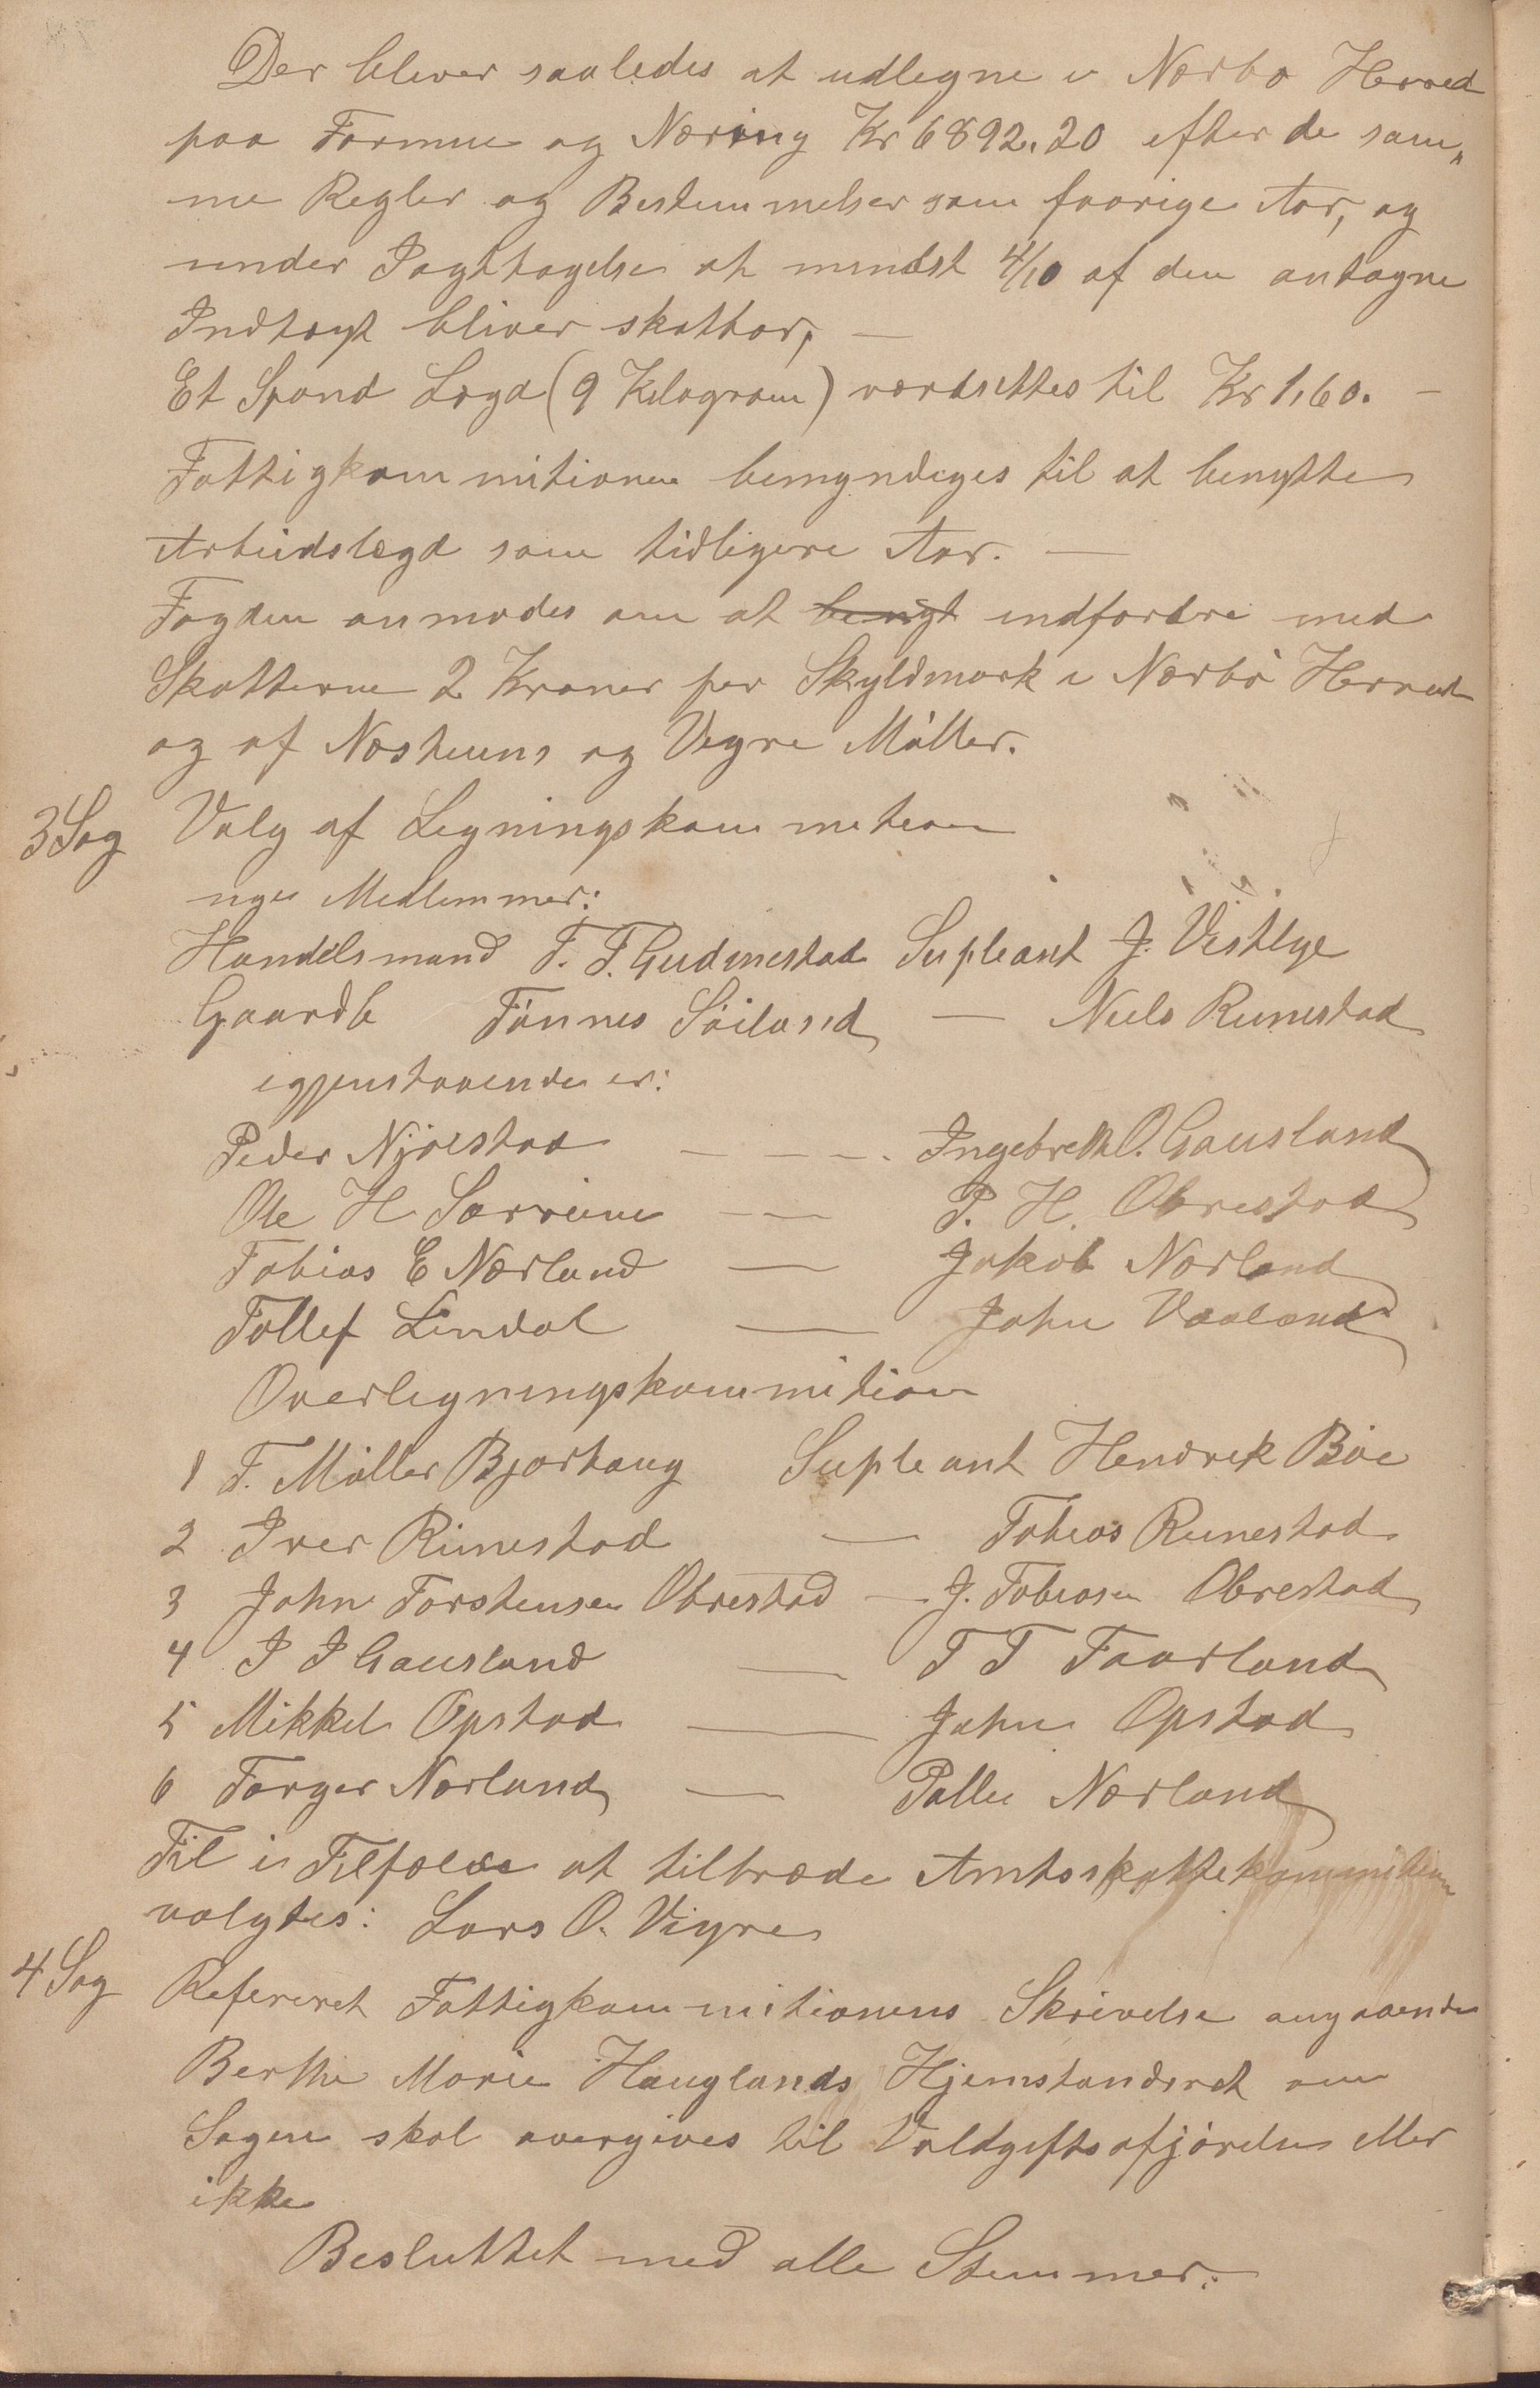 Der bliver saaledes at udlegne i Nærbø Herred
paa Formue og Næring Kr 6892,20 efter de sam„
me Regler og Bestemmelser som forrige Aar, og
under Iagttagelse at mindst 4/10 af den antagne
Indtægt bliver skatbar, —
Et Spand Lægd (9 Kilogram) værdsettes til Kr 1,60. —
Fattigkommitionen bemyndiges til at benytte
Arbeidslægd som tidligere Aar. —
Fogden anmodes om at benyt indfordre med
Skatterne 2 Kroner per Skyldmark i Nærbø Herred
og af Næsheims og Vigre Møller.
3 Sag Valg af Ligningskommition
nye Medlemmer:
Handelsmand T. T. Gudmestad Supleant J. Vistlye
Gaardb Tønnes Søiland — Niels Rimestad
igjenstaaende er:
Peder Njølstad — — — Ingebreth O. Gausland
Ole H Sørreime — — P. H. Obrestad
Tobias E Nærland — Jakob Nærland
Tollef Lindal — John Vaaland
Overligningskommition
1 T. Møller Bjorhaug Supleant Hendrek Bøe
2 Iver Rimestad — Tobias Rimestad
3 John Torstensen Obrestad — J. Tobiasen Obrestad
4 I I Gausland — T T Taarland
5 Mikkel Opstad — John Opstad
6 Torger Nærland — Palle Nærland
Til i Tilfælde at tiltræde Amtsskattekommition
valgtes: Lars O. Vigre
4 Sag Refereret Fattigkommitionens Skrivelse angaaende
Berthe Marie Hauglands Hjemstandsret om
Sagen skal overgives til Voldgiftsafjørelse eller
ikke
Besluttet med alle Stemmer: